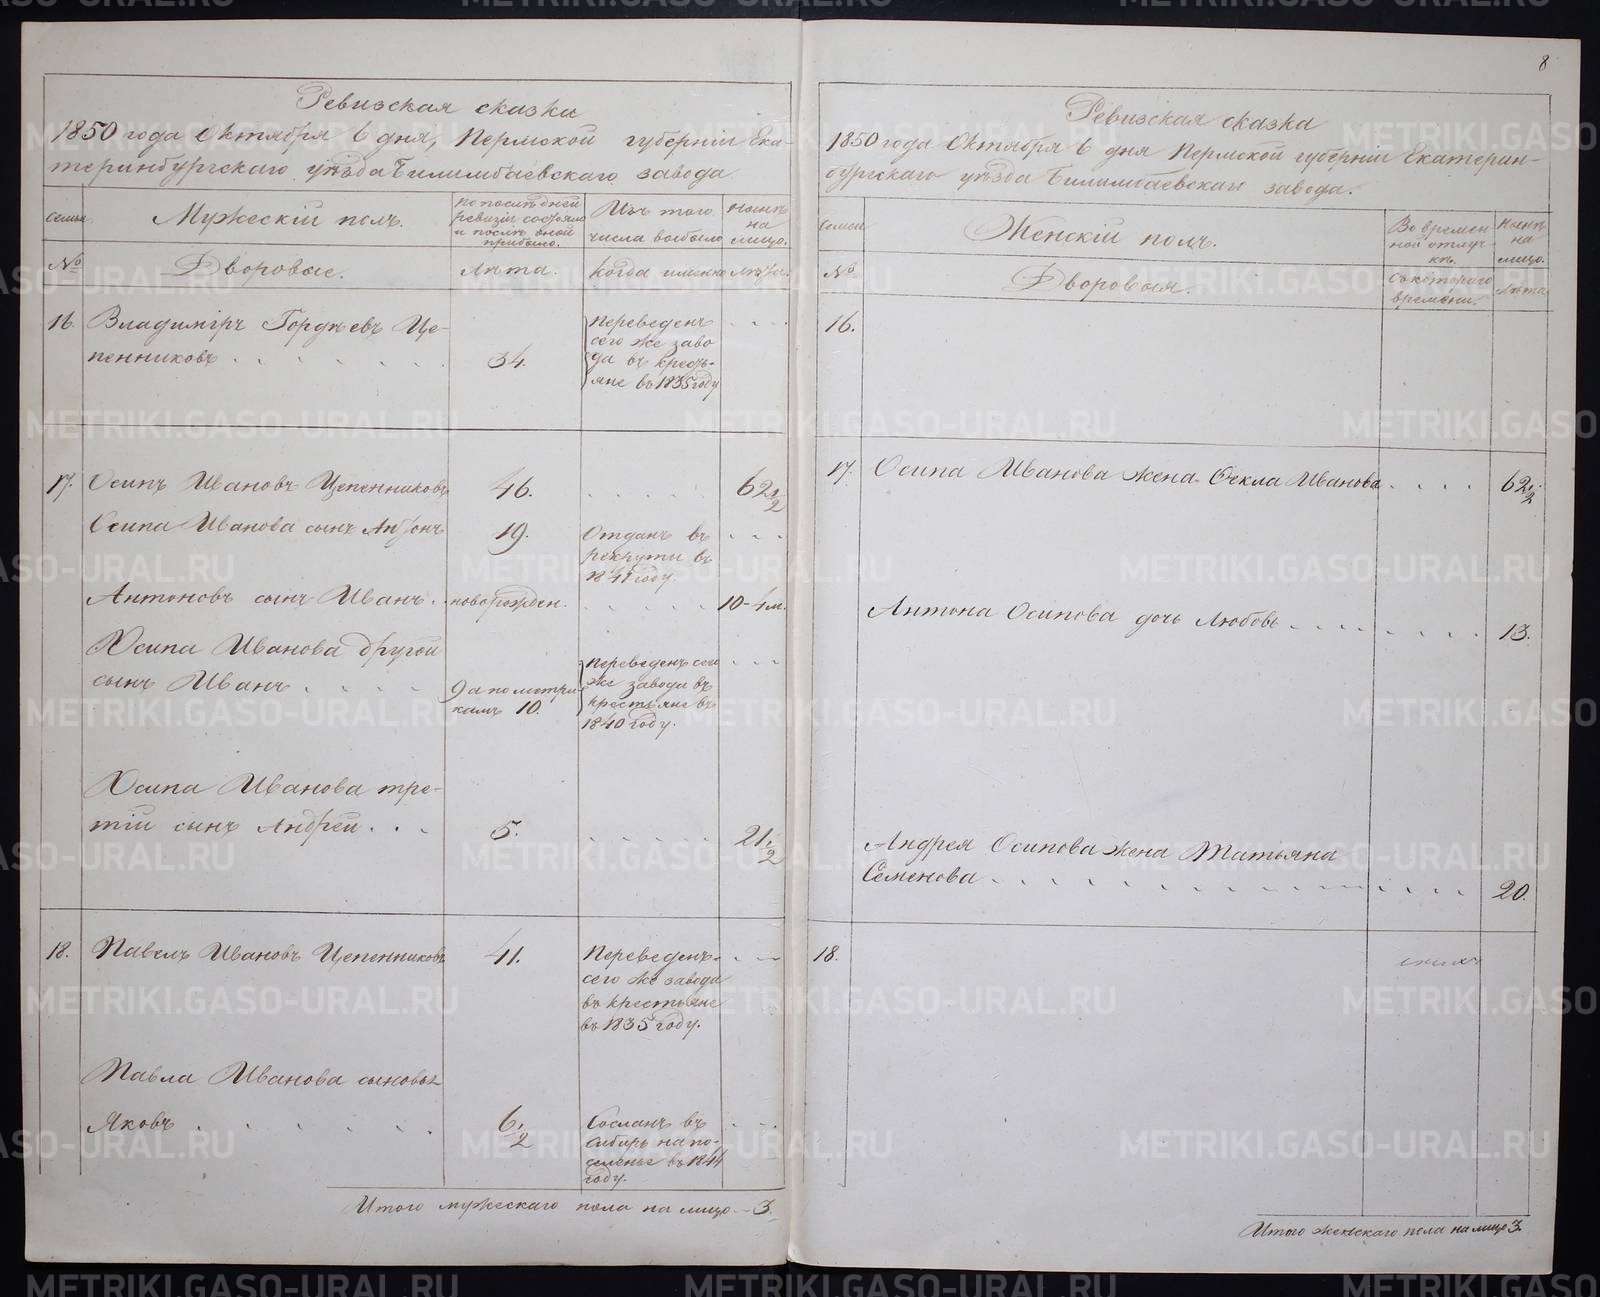 8
Ревизская сказка
1850 года Октября 6 дня, Пермской губернiи Ека-
теринбургскаго уѣзда Билимбаевскаго завода.
Семьи
Мужескiй полъ.
По послѣдней
ревизiи состояло
и послѣ оной
прибыло.
Изъ того
числа выбыло
Нынѣ
на
лицо.
№
Дворовые.
Лѣта.
Когда именно
Лѣта.
16.
Владимiръ Гордѣевъ Це-
пенниковъ
34.
Переведенъ
сего же заво
да въ кресть-
яне въ 1835 году
17.
Осипъ Ивановъ Цепенниковъ
46.
62 1/2
Осипа Иванова сынъ Антонъ
19.
Отданъ въ
рекруты въ
1841 году.
Антоновъ сынъ Иванъ
новорожден.
10-4 м.
Осипа Иванова другой
сынъ Иванъ
9 а по метри-
камъ 10.
Переведенъ сего
же завода въ
крестьяне въ
1840 году.
Осипа Иванова тре-
тiй сынъ Андрей
5.
21 1/2
18.
Павелъ Ивановъ Цепенниковъ
41.
Переведенъ
сего же завода
въ крестьяне
въ 1835 году.
Павла Иванова сыновья
Яковъ
6 1/2
Сосланъ въ
Сибирь на по-
селенье въ 1844
году.
Итого мужескаго пола на лицо - 3.
Ревизская сказка
1850 года Октября 6 дня Пермской губернiи Екатерин-
бургскаго уѣзда Билимбаевскаго завода.
Семьи
Женскiй полъ.
Во времен
ной отлуч
кѣ.
Нынѣ
на
лицо.
№
Дворовыя.
Съ котораго
времени.
Лѣта
16.
17.
Осипа Иванова жена Фекла Иванова
62 1/2
Антона Осипова дочь Любовь
13.
Андрея Осипова жена Татьяна
Семенова
20.
18.
Итого женскаго пола на лицо 3.
METRIKI.GASO-URAL.RU